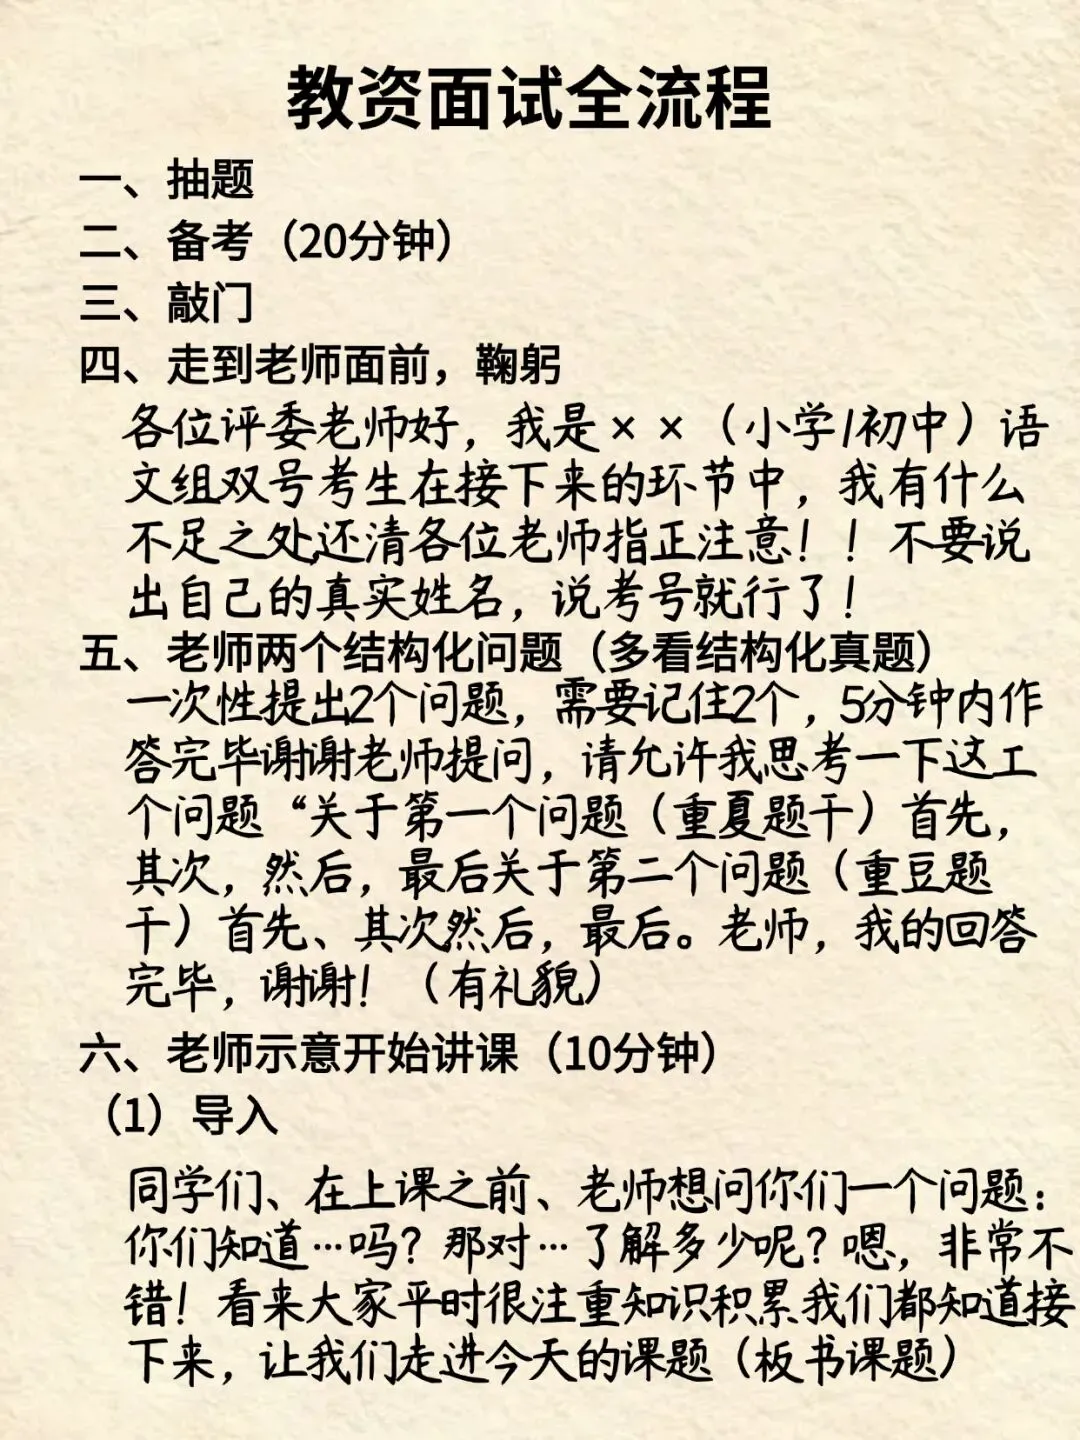 教资面试全流程
一、抽题
二、备考（20分钟）
三、敲门
四、走到老师面前，鞠躬
各位评委老师好，我是××（小学/初中）语
文组双号考生在接下来的环节中，我有什么
不足之处还清各位老师指正注意！！不要说
出自己的真实姓名，说考号就行了！
五、老师两个结构化问题（多看结构化真题）
一次性提出2个问题，需要记住2个，5分钟内作
答完毕谢谢老师提问，请允许我思考一下这工
个问题“关于第一个问题（重夏题干）首先，
其次，然后，最后关于第二个问题（重豆题
干）首先、其次然后，最后。老师，我的回答
完毕，谢谢！（有礼貌）
六、老师示意开始讲课（10分钟）
（1）导入
同学们、在上课之前、老师想问你们一个问题：
你们知道…吗？那对…了解多少呢？嗯，非常不
错！看来大家平时很注重知识积累我们都知道接
下来，让我们走进今天的课题（板书课题）